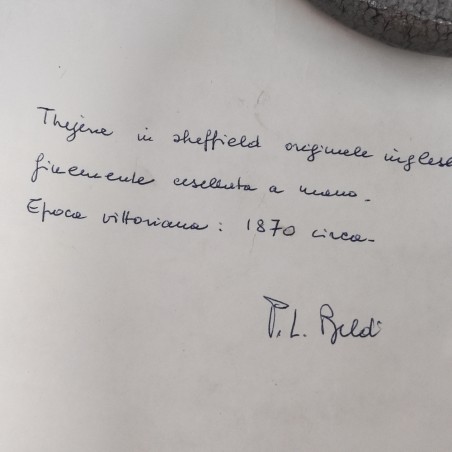 Theiera in sheffield originale inglese
finemente cesellata a mano.
Epoca vittoriana: 1870 circa.
P. L. Baldi